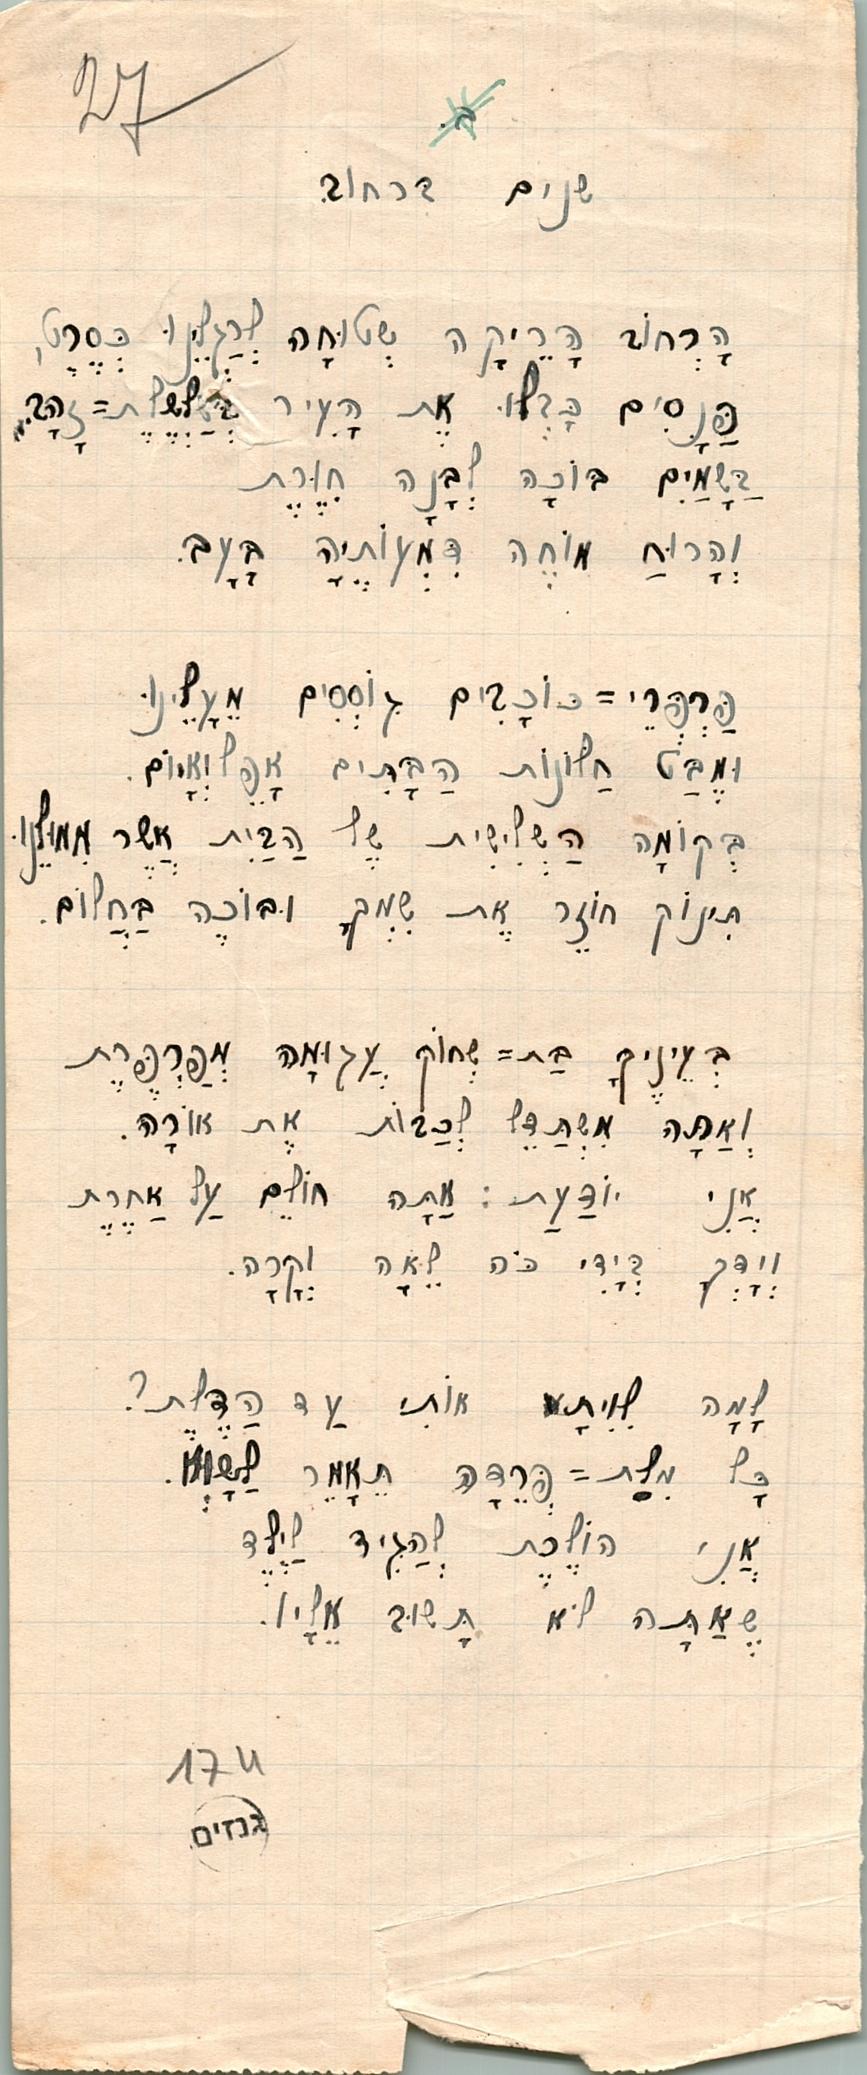 27
ב.
שנים ברחוב
הָרְחוֹב הָרֵיקָה שְׁטוּחָה לְרַגְלֵינוּ כְּסֶרֶט,
פַּנָסִים כָּבְלוּ אֶת הָעִיר בְּשַׁלְשֶׁלֶת=זָהָב.
בַּשָׁמַיִם בּוֹכָה לְבָנָה חִוֶּרֶת
וְהָרוּחַ מוֹחֶה דִמְעוֹתֶיהָ בָּעָב.
פַּרְפְּרֵי=כּוֹכָבִים גּוֹסְסִים מֵעָלֵינוּ
וּמֶבַּט חַלּוֹנוֹת הַבָּתִּים אָפֵל וְאָיוֹם.
בְּקוֹמָה הַשְׁלִישִׁית שֶׁל הַבַּיִת אֲשֶׁר מִמוּלֵנוּ
תִינוֹק חוֹזֵר אֶת שִׁמְךָ וּבוֹכֶה בַּחֲלוֹם.
בְּעֵינֶיךָ בַּת=שְׂחוֹק עֲגוּמָה מְפַרְפֶּרֶת
וְאַתָּה מִשְׁתַּדֵּל לְכַבּוֹת אֶת אוֹרָהּ.
אֲנִי יוֹדַעַת: אַתָּה חוֹלֵם עַל אַחֶרֶת
וְיָדְךָ בְּיָדִי כֹּה לֵאָה וְקָרָה.
לָמָה לִוִּיתָ אוֹתִי עַד הַדֶּלֶת?
כָּל מִלַּת=פְּרֵדָה תֵאָמֵר לַשָּׁוְא.
אֲנִי הוֹלֶכֶת לְהַגִּיד לַיֶּלֶד
שֶׁאַתָּה לֹא תָּשׁוּב אֵלָיו.
174
גנזים